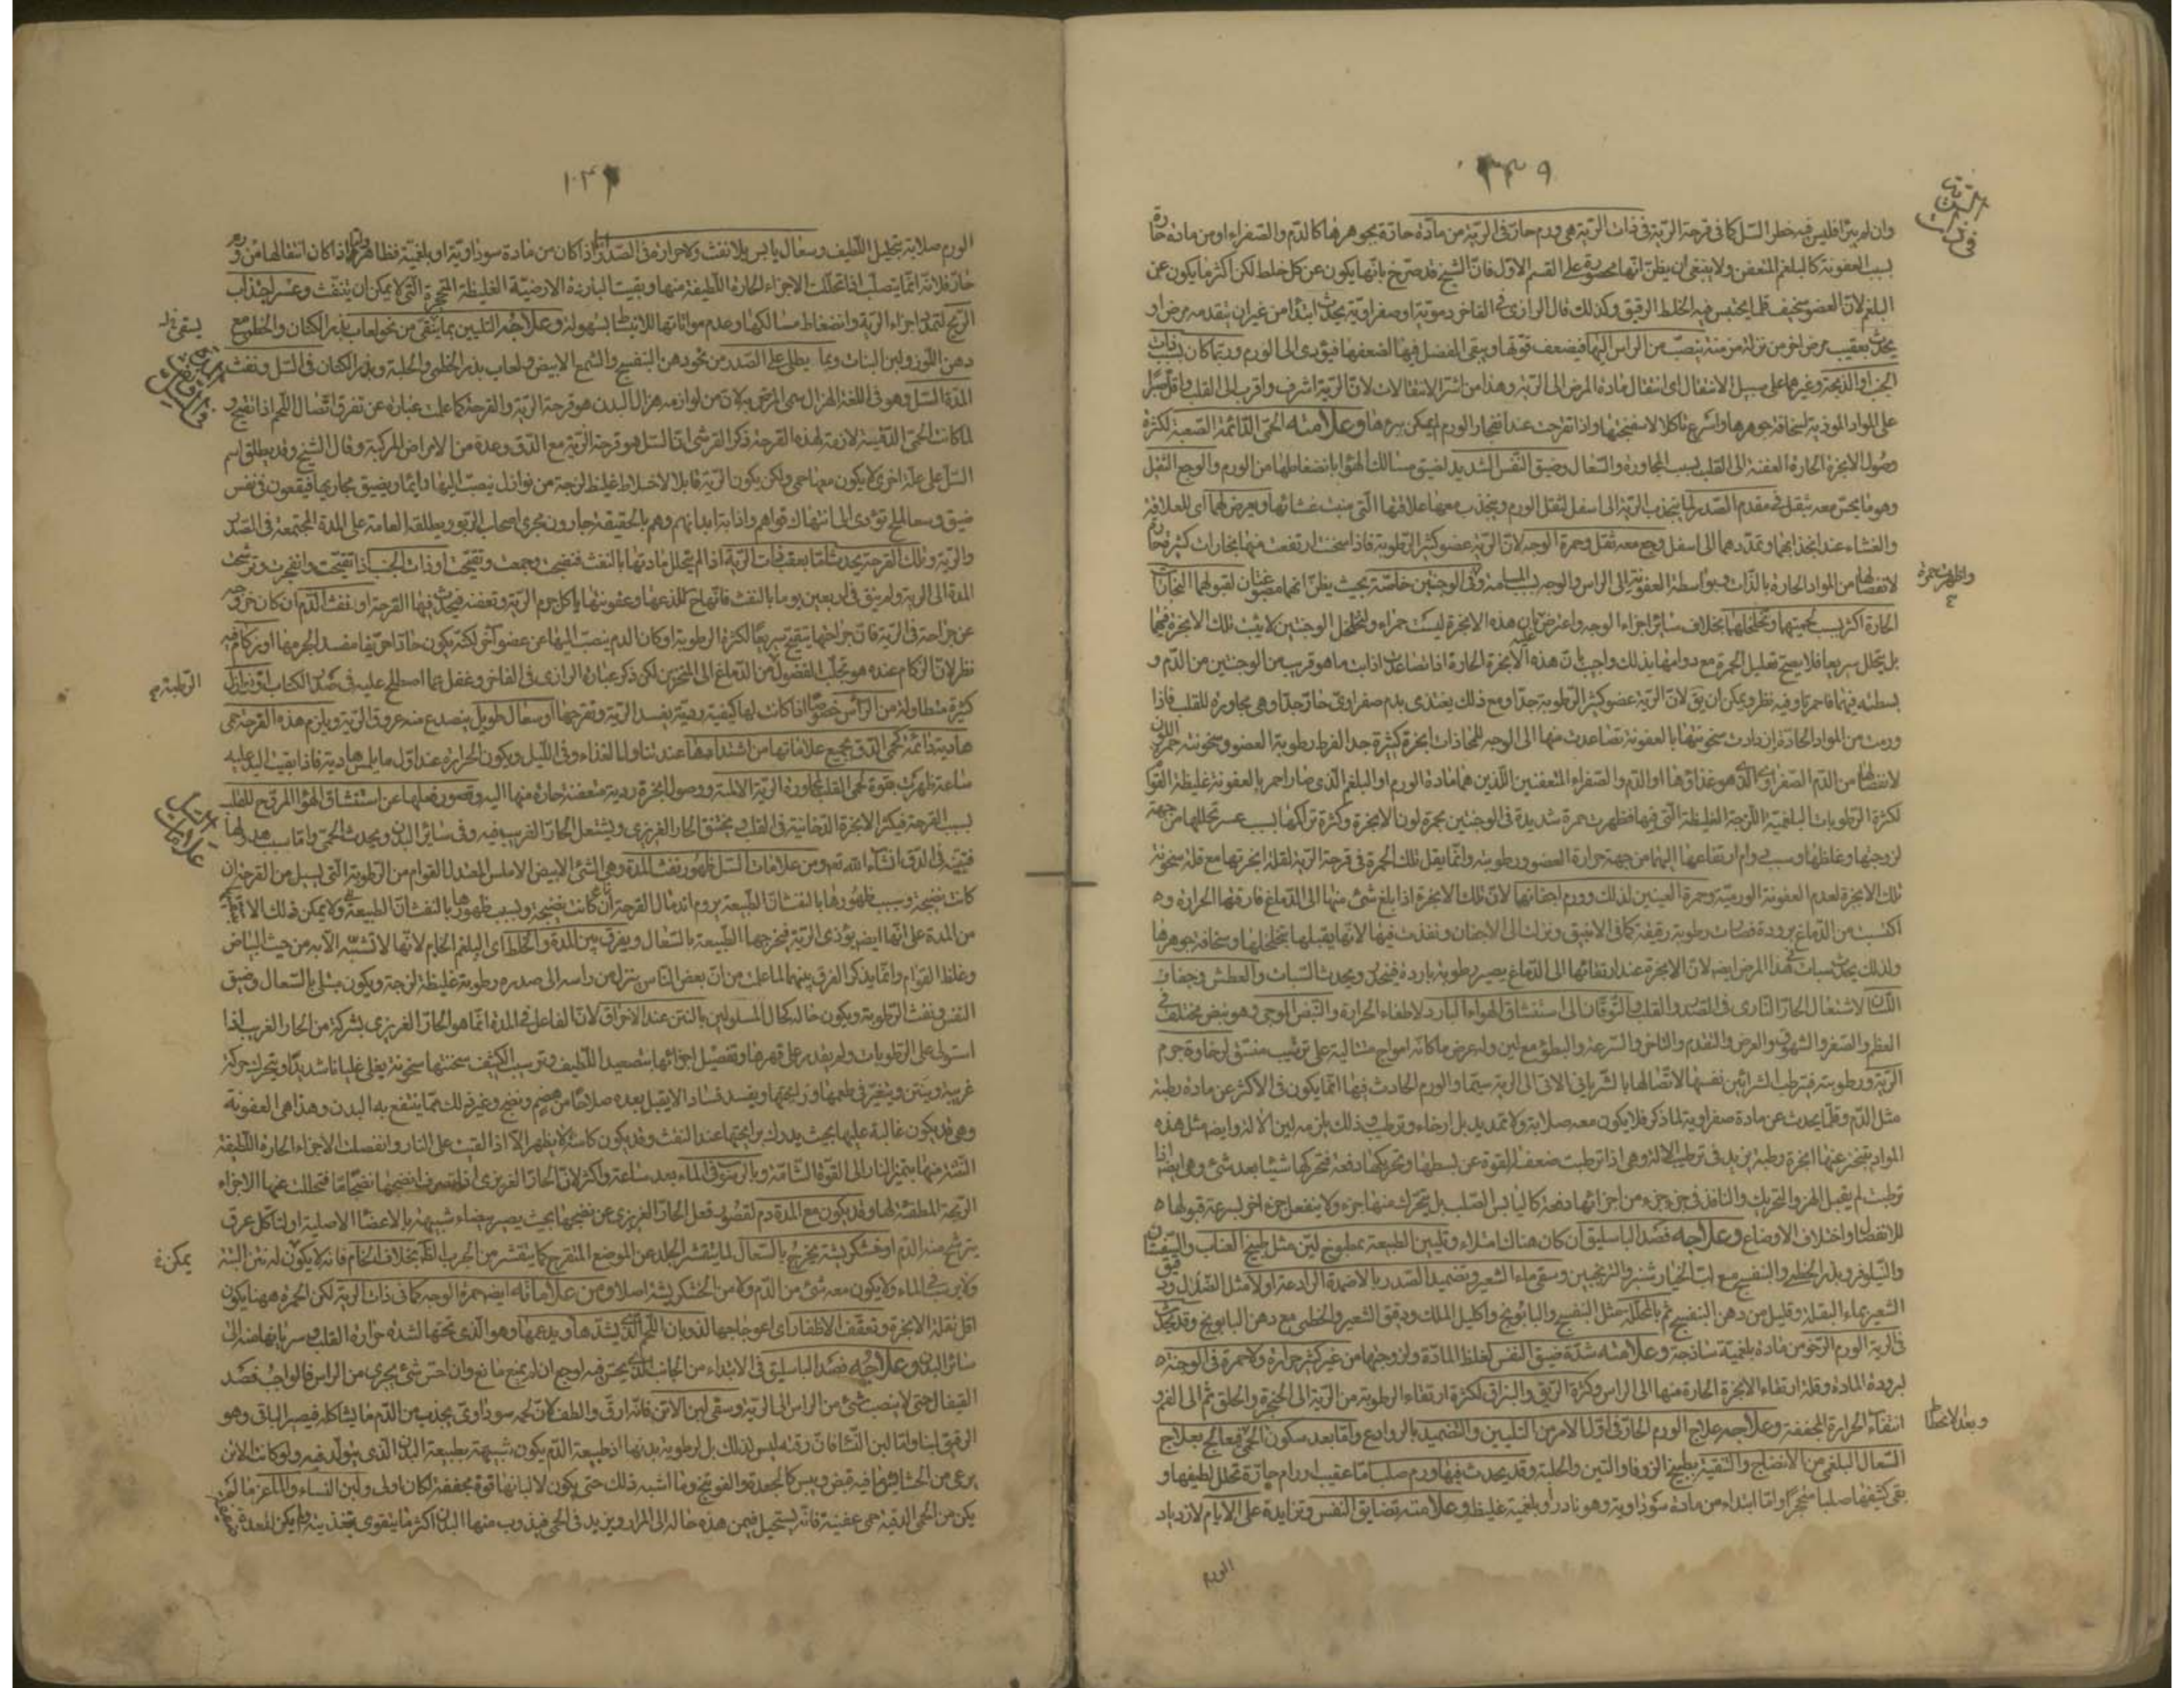 ٣٣٩
فى ذات الرية
وان لم يبرا فليس فيه خطر السل كما فى قرحة الرية فى ذات الرية هى ورم حار فى الرية من مادة حادة بجوهرها كالدم والصفراء او من مادة حارة
بسبب العفونة كالبلغم المتعفن ولا ينبغى ان يظن انها محصورة على القسم الاول فان الشيخ قد صرح بانها يكون عن كل خلط لكن اكثر ما يكون عن
البلغم لان العضو سخيف قلما يحتبس فيه الخلط الرقيق وكذلك قال الرازى فى الفاخر دموية او صفراوية يحدث ابتدا من غير ان يتقدمه مرض او
يحدث بعقيب مرض اخر من نزلة مزمنة ينصب من الراس اليها فيضعف قوتها ويبقى الفضل فيها لضعفها فيؤدى الى الورم وربما كان بسبب ذات
الجنب او الذبحة وغيرهما على سبيل الانتقال اى انتقال مادة المرض الى الرية وهذا من اشر الانتقالات لان الرية اشرف واقرب الى القلب واقل صبرا
على المواد الموذية لسخافة جوهرها واسرع تاكلا لاسفنجيتها واذا تقرحت عند انفجار الورم لم يمكن برءها وعلامته الحمى الدائمة الصعبة لكثرة
وصول الابخرة الحارة العفنة الى القلب بسبب المجاورة والسعال وضيق النفس الشديد لضيق مسالك الهواء بانضغاطها من الورم والوجع الثقيل
وهو ما يحس معه بثقل فى مقدم الصدر لما ينجذب الرية الى اسفل لثقل الورم وينجذب معها علاقتها التى منبت غشائها ويعرض لهما اى للعلاقة
والغشاء عند انجذابهما وتمددهما الى اسفل وجع معه ثقل وحمرة الوجه لان الرية عضو كثير الرطوبة فاذا سخنت ارتفعت منها بخارات كثيرة حارة
واظهرت حمرة
لانفصالها من المواد الحارة بالذات وبواسطة العفونة الى الراس والوجه وفى الوجنتين خاصة بحيث يظن انهما مصبوغتان لقبولهما البخارات
الحارة اكثر بسبب لحميتهما وتخلخلهما بخلاف سائر اجزاء الوجه واعترض بان هذه الابخرة ليست حمراء ولتخلخل الوجنتين لا يثبت تلك الابخرة فيهما
بل يتحلل سريعا فلا يصح تعليل الحمرة مع دوامها بذلك واجيب بان هذه الابخرة الحارة اذا تصاعدت اذابت ما هو قريب من الوجنتين من الدم و
بسطته فيهما فاحمرتا وفيه نظر ويمكن ان يق لان الرية عضو كثير الرطوبة جدا ومع ذلك يغتذى بدم صفراوى حار جدا وهى مجاورة للقلب فاذا
ورمت من المواد الحادة ازدادت سخونتها بالعفونة تصاعدت منها الى الوجه للمحاذات ابخرة كثيرة جدا لفرط رطوبة العضو وسخونته
لانفصالها من الدم الصفراوى الذى هو غذاؤها او الدم والصفراء المتعفنين اللذين هما مادة الورم او البلغم الذى صار احمر بالعفونة غليظة القوام
لكثرة الرطوبات البلغمية اللزجة الغليظة التى فيها فظهرت حمرة شديدة فى الوجنتين بحمرة لون الابخرة وكثرة تراكمها بسبب عسر تحللها من جهة
لزوجتها وغلظها وبسبب دوام ارتفاعها اليهما من جهة حرارة العضو ورطوبته وانما يقل تلك الحمرة فى قرحة الرية لقلة ابخرتها مع قلة سخونة
تلك الابخرة لعدم العفونة الورمية وحمرة العينين لذلك وورم اجفانها لان تلك الابخرة اذا بلغ شئ منها الى الدماغ فارقتها الحرارة و
اكتسبت من الدماغ برودة فصارت رطوبة رقيقة كما فى الانبيق ونزلت الى الاجفان ونفذت فيها لانها يقبلها بتخلخلها وسخافة جوهرها
ولذلك يحدث سبات فى هذا المرض ايضا لان الابخرة عند ارتقائها الى الدماغ يصير رطوبة باردة فيتخدر ويحدث السبات والعطش وجفاف
اللسان لاشتعال الحار النارى فى الصدر والقلب والتوقان الى استنشاق الهواء البارد لاطفاء الحرارة والنبض الموجى وهو نبض مختلف فى
العظم والصغر والشهوق والعرض والتقدم والتاخر والسرعة والبطؤ مع لين وله عرض ما كانه امواج متتالية على ترتيب متسق لرخاوة جرم
الرية ورطوبته فيترطب الشرائين نفسها لاتصالها بالشريانى الاتى الى الرية سيما والورم الحادث فيها انما يكون فى الاكثر عن مادة رطبة
مثل الدم وقلما يحدث عن مادة صفراوية لما ذكر فلا يكون معه صلابة ولا تمديد بل ارخاء وترطيب ذلك يلزمه لين الالة وايضا مثل هذه
المواد تتبخر عنها ابخرة رطبة يزيد فى ترطيب الالة وهى اذا ترطبت ضعفت القوة عن بسطها وتحريكها دفعة فتحركها شيئا بعد شئ وهى ايضا اذا
ترطبت لم يقبل الهز والتحريك والنافذ فى جزء جزء من اجزائها دفعة كاليابس الصلب بل يتحرك منها جزء ولا ينفعل جزء اخر بسرعة قبولها
للانفصال واختلاف الاوضاع وعلاجه فصد الباسليق ان كان هناك امتلاء وتليين الطبيعة بمطبوخ لين مثل طبيخ العناب والسپستان
والنيلوفر وبزر الخطمى والبنفسج مع لب الخيارشنبر والترنجبين وسقى ماء الشعير وتضميد الصدر بالاضمدة الرادعة اولا مثل الصندل ودقيق
الشعير بماء البقلة وقليل من دهن البنفسج ثم بالمحللة مثل البنفسج والبابونج واكليل الملك ودقيق الشعير والخطمى مع دهن البابونج وقد يحدث
فى الرية الورم الرخو من مادة بلغمية ساذجة وعلامته شدة ضيق النفس لغلظ المادة ولزوجتها من غير كثير حرارة ولا حمرة فى الوجنة
لبرودة المادة وقلة ارتقاء الابخرة الحارة منها الى الراس وكثرة الريق والبزاق لكثرة ارتقاء الرطوبة من الرية الى الحنجرة والحلق ثم الى الفم و
وبعد الانحطاط
انتفاء الحرارة المجففة وعلاجه علاج الورم الحار فى اول الامر من التليين والتضميد بالروادع واما بعد سكون الحمى فيعالج بعلاج
السعال البلغمى من الانضاج والتنقية بطبيخ الزوفا والتين والحلبة وقد يحدث فيها ورم صلب اما عقيب اورام حارة تحلل لطيفها و
بقى كثيفها صلبا متحجرا واما ابتداء من مادة سوداوية وهو نادر او بلغمية غليظة وعلامته تضايق النفس وتزايده على الايام لازدياد
الورم
الورم صلابة بتحليل اللطيف وسعال يابس بلا نفث ولا حرارة فى الصدر اذا كان من مادة سوداوية او بلغمية فظاهر واما اذا كان انتقالها من ورم
حار فلانه انما يتصلب اذا تحللت الاجزاء الحارة اللطيفة منها وبقيت الباردة الارضية الغليظة المتحجرة التى لا يمكن ان يتنفث وعسر اجتذاب
الريح لتمدد اجزاء الرية وانضغاط مسالكها وعدم مواتاتها للانبساط بسهولة وعلاجه التليين بما يتقى من نحو لعاب بذر الكتان والخطمى مع
دهن اللوز ولبن البنات وبما يطلى على الصدر من نحو دهن البنفسج والشمع الابيض ولعاب بذر الخطمى والحلبة وبذر الكتان فى السل ونفث
المدة السل وهو فى اللغة الهزال سمى المرض به لان من لوازمه هزال البدن هو قرحة الرية والقرحة كما علمت عبارة عن تفرق اتصال اللحم اذا تقيح و
لما كانت الحمى الدقية لازمة لهذه القرحة ذكر القرشى ان السل هو قرحة الرية مع الدق وعده من الامراض المركبة وقال الشيخ وقد يطلق اسم
السل على علة اخرى لا يكون معها حمى ولكن يكون الرية قابلة لاخلاط غليظة لزجة من نوازل ينصب اليها دائما ويضيق مجاريها فيقعون فى نفس
ضيق وسعال ملح تؤدى الى انتهاك قواهم واذابة ابدانهم وهم بالحقيقة جارون مجرى اصحاب الربو ويطلقه العامة على المدة المجتمعة فى الصدر
والرية وتلك القرحة يحدث اما بعقب ذات الرية اذا لم يتحلل مادتها بالنفث فنضجت وجمعت وتقيحت او ذات الجنب اذا تقيحت وانفجرت وترشحت
المدة الى الرية ولم ينق فى اربعين يوما بالنفث فانها ح للذعها وعفونتها ياكل جرم الرية وتعفنه فيحدث فيها القرحة او نفث الدم ان كان خروجه
عن جراحة فى الرية فان جراحتها يتقيح سريعا لكثرة الرطوبة او كان الدم ينصب اليها عن عضو اخر لكنه يكون حادا حريفا مفسدا لجرمها او زكام فيه
نظر لان الزكام عنده هو تجلب الفضول من الدماغ الى المنخرين لكن ذكر عبارة الرازى فى الفاخر وغفل عما اصطلح عليه فى صدر الكتاب او نوازل
كثيرة متطاولة من الراس خصوصا اذا كانت لها كيفية ردية يفسد الرية وتقرحها او سعال طويل ينصدع منه عروق الرية ويلزم هذه القرحة حمى
هادية دائمة كحمى الدق بجميع علاماتها من اشتدادها عند تناول الغذاء وفى الليل ويكون الحرارة عند اول ما يلمس هادية فاذا بقيت اليد عليه
ساعة ظهرت بقوة لحمى القلب لمجاورة الرية الالمة ووصول ابخرة ردية متعفنة حارة منها اليه وقصور فعلها عن استنشاق الهواء المروح للقلب
بسبب القرحة فيكثر الابخرة الدخانية فى القلب ويختنق الحار الغريزى ويشتعل الحار الغريب فيه وفى سائر البدن ويحدث الحمى واما سبب هدوئها
فيجئ فى الدق انشاء الله تعه ومن علامات السل ظهور نفث المدة وهى الشئ الابيض الاملس المعتدل القوام من الرطوبة التى يسيل من القرحة ان
كانت نضيجة وسبب ظهورها بالنفث ان الطبيعة يروم اندمال القرحة ان كانت نضيجة وبسبب ظهورها بالنفث ان الطبيعة ولا يمكن ذلك الا
من المدة على انها ايضا يؤذى الرية فيخرجها الطبيعة بالسعال ويفرق بين المدة والخلط اى البلغم الخام لانها لا تشبه الا به من حيث البياض
وغلظ القوام وانما يذكر الفرق بينهما لما علمت من ان بعض الناس ينزل من راسه الى صدره رطوبة غليظة لزجة ويكون مبتلى بالسعال وضيق
النفس ونفث الرطوبة ويكون حاله كحال المسلولين بالنتن عند الاحراق لان الفاعل فى المدة انما هو الحار الغريزى بشركة من الحار الغريب اذا
استولى على الرطوبات ولم يقدر على قهرها وتفصيل اجزائها بتصعيد اللطيف وترسيب الكثيف سخنتها سخونة يغلى غليانا شديدا ويتحرك حركة
غريبة وينتن ويتغير فى طعمها ورائحتها ويفسد فسادا لا يقبل بعده صلاحا من هضم ونضج وغير ذلك مما ينتفع به البدن وهذا هى العفونة
وهى قد يكون غالبة عليها بحيث يدرك برائحتها عند النفث وقد يكون كامنة لا يظهر الا اذا القيت على النار وانفصلت الاجزاء الحارة اللطيفة
النتنة منها بتميز النار الى القوة الشامة وبالرسوب فى الماء بعد ساعة واكثر لان الحار الغريزى انضجها نضجا تاما فتحللت عنها الاجزاء
الريحية المطفئة لها وقد يكون مع المدة دم لقصور فعل الحار الغريزى عن نضجها بحيث يصير بيضاء شبيهة بالاعضاء الاصلية او لتاكل عرق
يترشح منه الدم او خشكريشة يخرج بالسعال لما يتقشر الجلد عن الموضع المتقرح كما يتقشر من الجرب الظاهر بخلاف الخام فانه لا يكون له نتن البتة
ولا يرسب فى الماء ولا يكون معه شئ من الدم ولا من الخشكريشة اصلا ومن علاماته ايضا حمرة الوجه كما فى ذات الرية لكن الحمرة ههنا يكون
اقل لقلة الابخرة وتعقف الاظفار اى اعوجاجها لذوبان اللحم الذى يشدها ويدعمها وهو الذى تحتها لشدة حرارة القلب وسريانها منه الى
سائر البدن وعلاجه فصد الباسليق فى الابتداء من الجانب الذى يحس فيه بوجع ان لم يمنع مانع وان احس شئ يجرى من الراس فالواجب فصد
القيفال حتى لا ينصب شئ من الراس الى الرية وسقى لبن الاتن فانه ارق والطف لان لحمه سوداوى يجذب من الدم ما يشاكله فيصير الباقى وهو
الرقيق لبنا واما لبن النساء فان رقته ليس لذلك بل لرطوبة بدنها اذ طبيعة الدم يكون شبيهة بطبيعة البدن الذى يتولد فيه ولو كانت الاتن
يرعى من الحشائش ما فيه قبض ويبس كالجعدة والفوتنج وما اشبه ذلك حتى يكون لالبانها قوة مجففة لكان اولى ولبن النساء والماعز ما لم
يكن من الحمى الدقية حمى عفنية فانه يستحيل فيمن هذه حاله الى المرار ويزيد فى الحمى فيذوب منها البدن اكثر مما يتقوى بتغذيته ولم يكن المعدة
الرطبة
علامات السل
يمكن